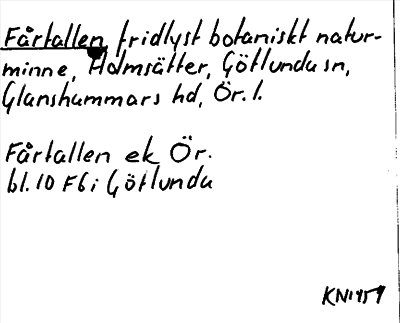 Fårtallen fridlyst botaniskt natur-
minne, Holmsätter, Götlunda sn,
Glanshammars hd, Ör. l.
Fårtallen ek Ör.
bl. 10 F6 i Götlunda
KN1959